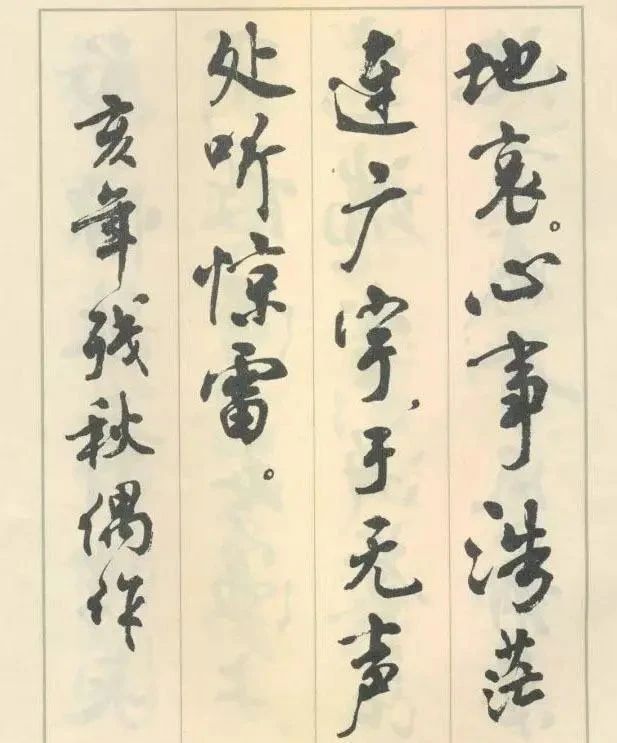 地哀。心事浩茫
连广宇，于无声
处听惊雷。
亥年残秋偶作